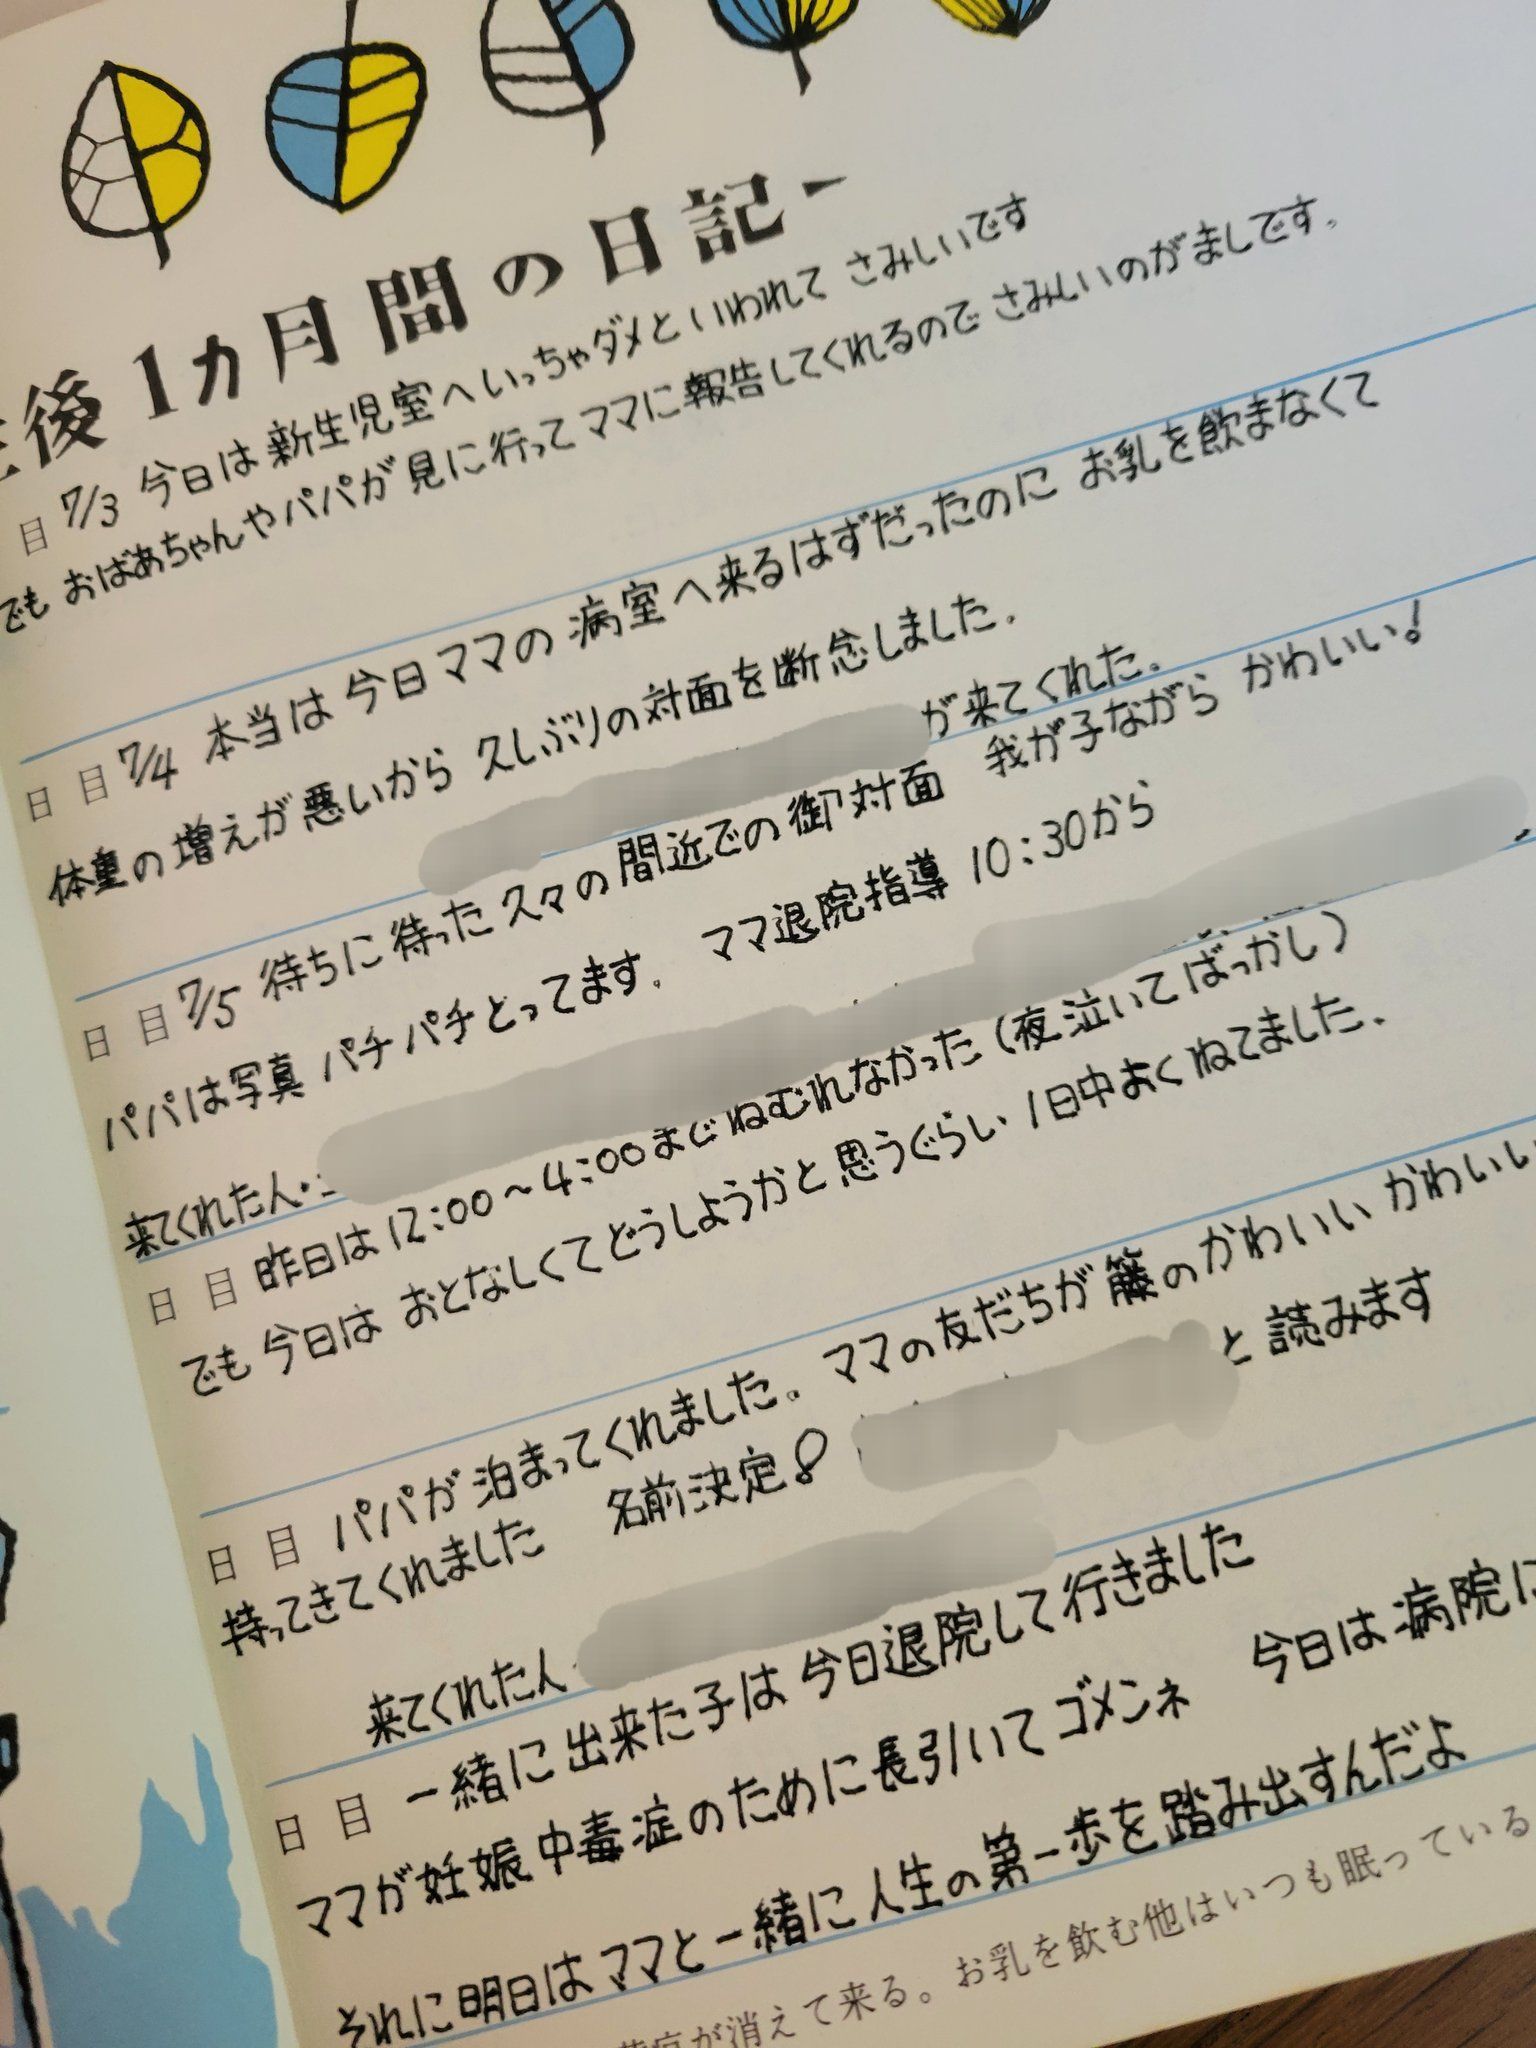 後1カ月間の日記ー
日 7/3 今日は新生児室へいっちゃダメといわれて さみしいです
でも おばあちゃんやパパが見に行ってママに報告してくれるので さみしいのがましです.
日 目 7/4 本当は今日ママの病室へ来るはずだったのに お乳を飲まなくて
体重の増えが悪いから 久しぶりの対面を断念しました.
が来てくれた.
日 目 7/5 待ちに待った久々の間近での御対面 我が子ながら かわいい!
パパは写真パチパチとってます. ママ退院指導 10:30から
来てくれた人・
日 目 昨日は12:00~4:00までねむれなかった(夜泣いてばっかし)
でも今日は おとなしくてどうしようかと思うぐらい1日中よくねてました.
日 目 パパが泊まってくれました. ママの友だちが籐のかわいい かわいい
持ってきてくれました 名前決定 と読みます
来てくれた人
日 目 一緒に出来た子は今日退院して行きました
ママが妊娠中毒症のために長引いてゴメンネ 今日は病院に
それに明日はママと一緒に人生の第一歩を踏み出すんだよ
が消えて来る。お乳を飲む他はいつも眠っている